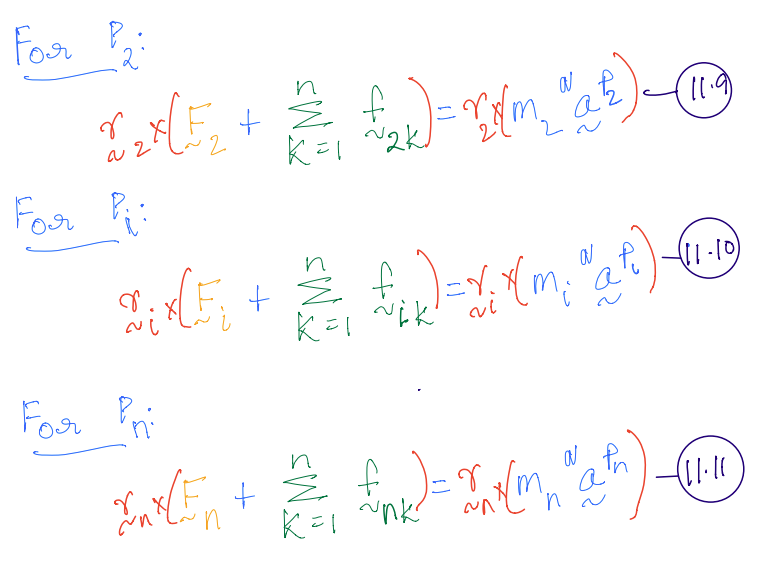 For P₂:
r̰₂ × (F̰₂ + Σ_{K=1}^{n} f̰₂ₖ) = r₂ × (m₂ ᴺa̰^{P₂}) — 11.9
For Pᵢ:
r̰ᵢ × (F̰ᵢ + Σ_{K=1}^{n} f̰ᵢₖ) = r̰ᵢ × (mᵢ ᴺa̰^{Pᵢ}) — 11.10
For Pₙ:
r̰ₙ × (F̰ₙ + Σ_{K=1}^{n} f̰ₙₖ) = r̰ₙ × (mₙ ᴺa̰^{Pₙ}) — 11.11